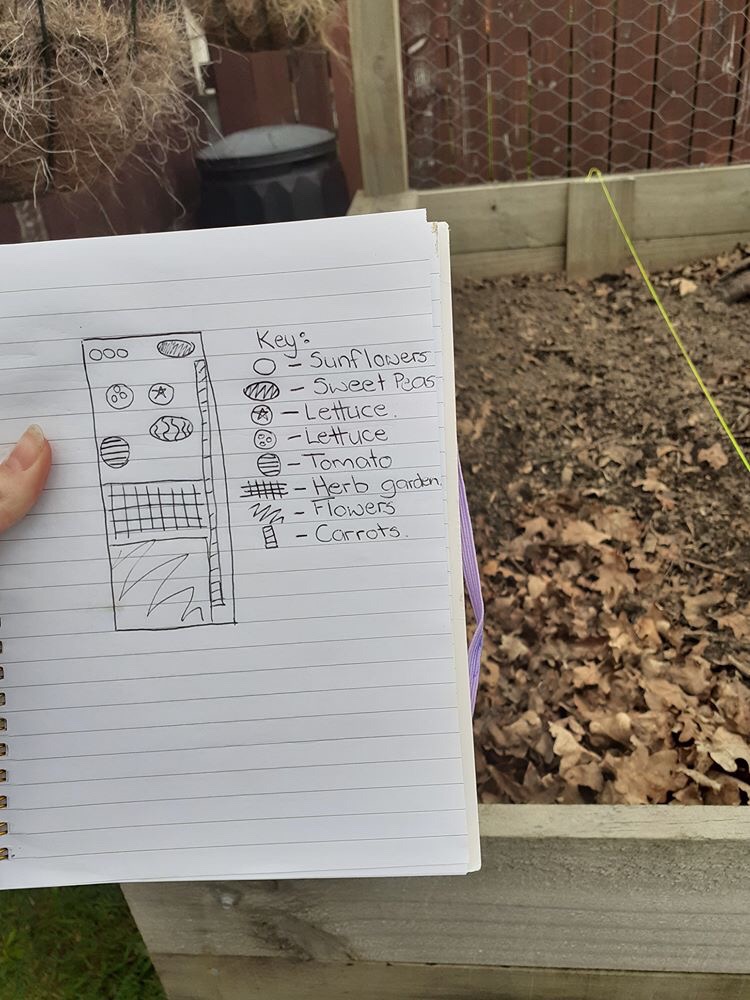 Key:
- Sunflowers
- Sweet Peas
- Lettuce.
- Lettuce
- Tomato
- Herb garden.
- Flowers
- Carrots.